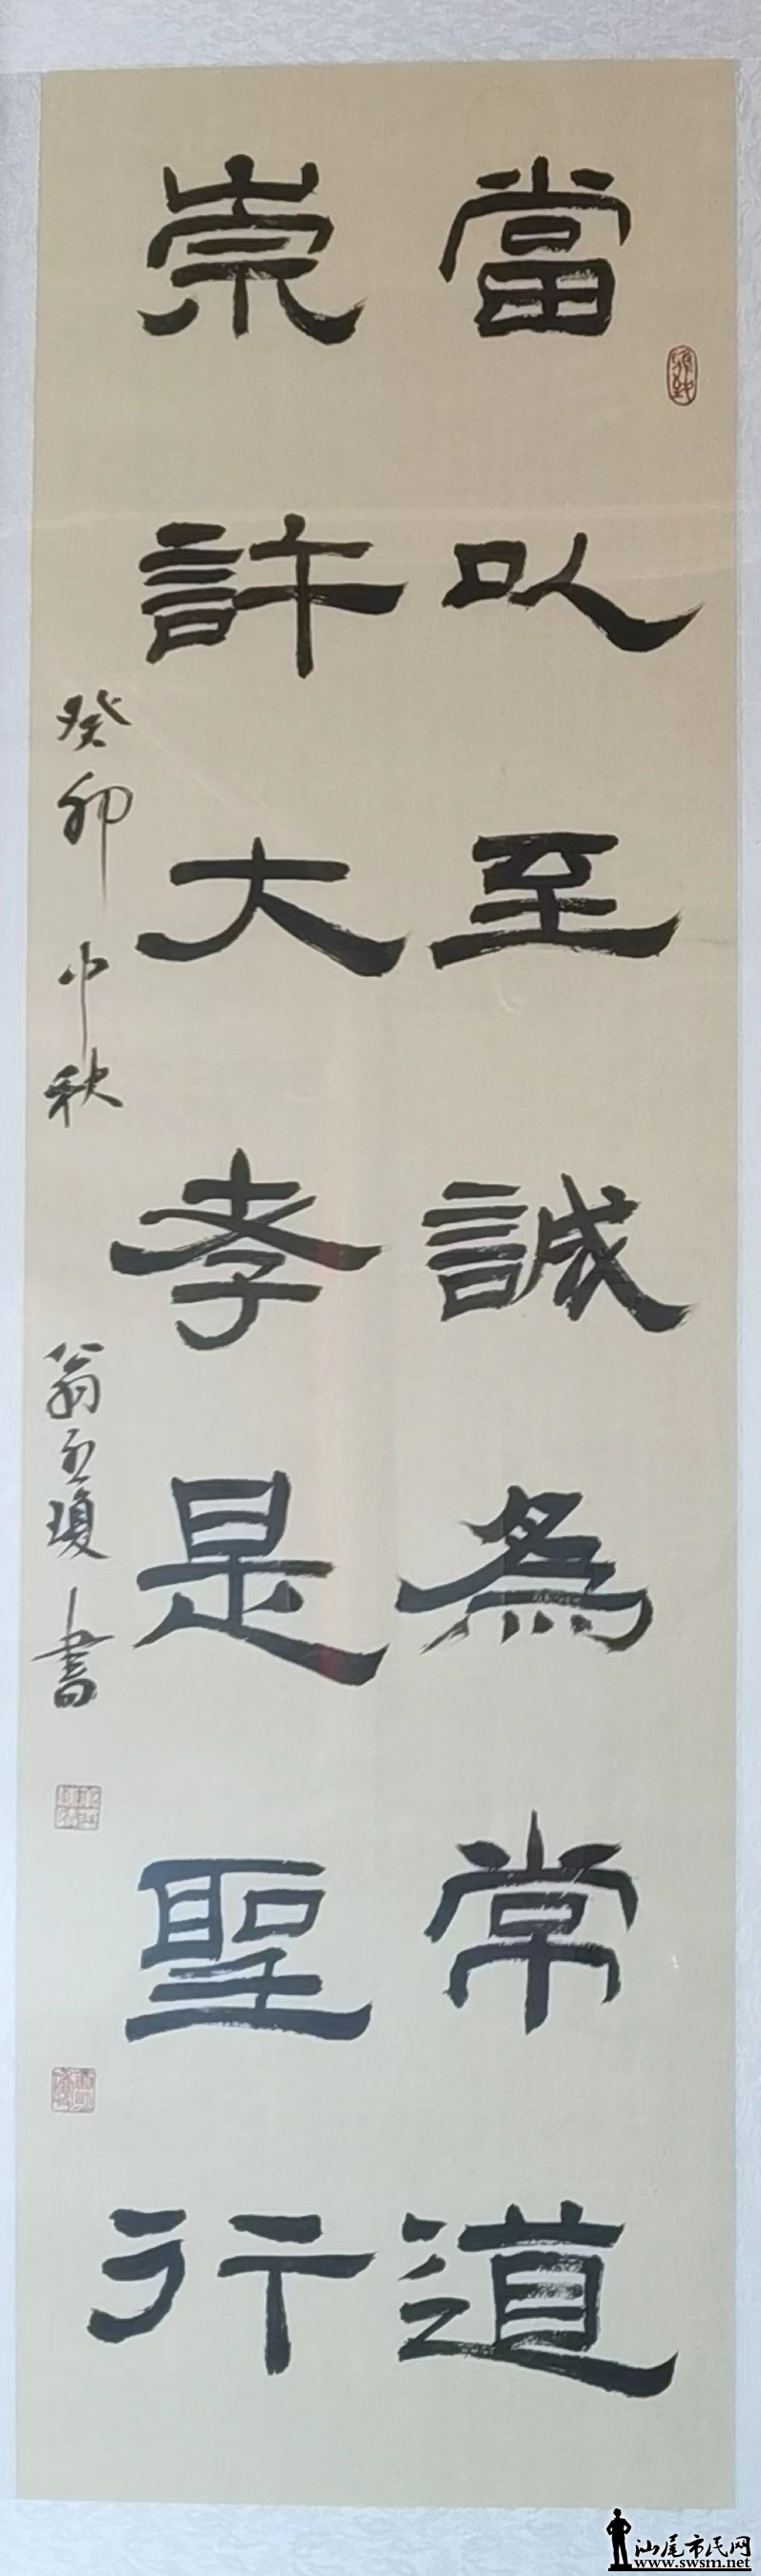 當以至誠為常道
崇許大孝是聖行
癸卯中秋
翁 瓊書
汕尾市民网
www.swsm.net